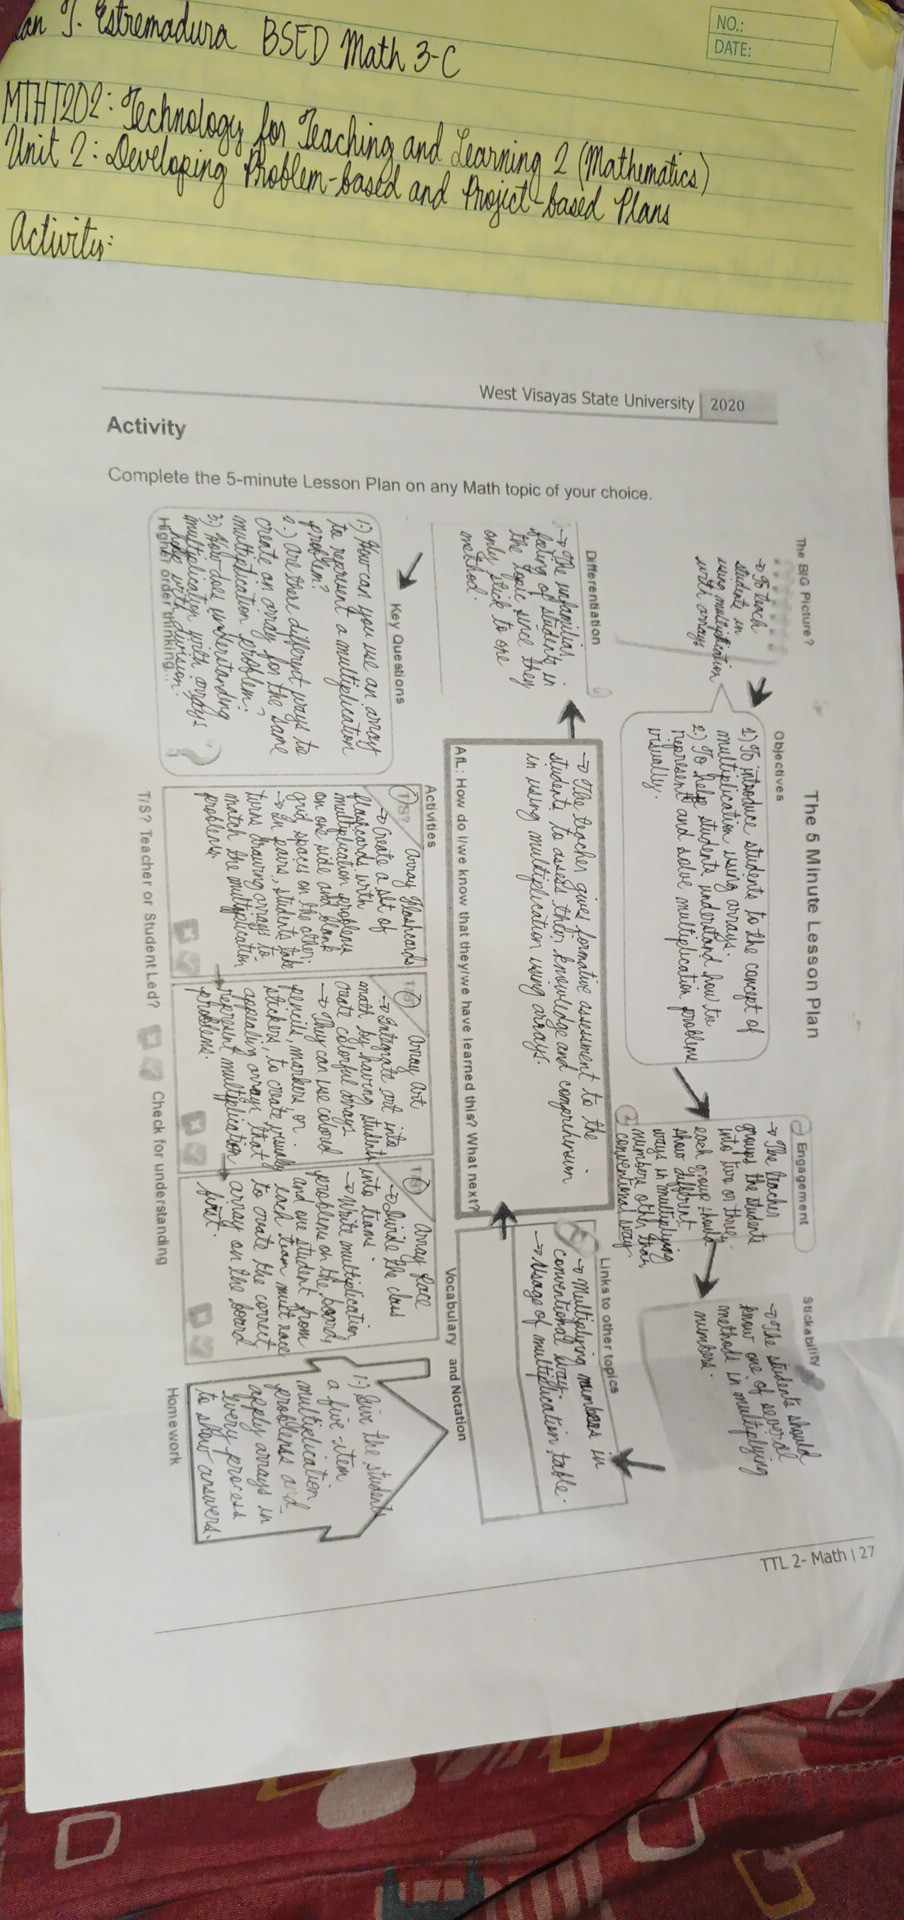 an J. Estremadura BSED Math 3-C
NO.:
DATE:
MTHT202: Technology for Teaching and Learning 2 (Mathematics)
Unit 2: Developing Problem-based and Project-based Plans
Activity:
West Visayas State University 2020
Activity
Complete the 5-minute Lesson Plan on any Math topic of your choice.
The 5 Minute Lesson Plan
The BIG Picture?
→ To teach
students in
using multiplication
with arrays
Objectives
1) To introduce students to the concept of
multiplication using arrays.
2) To help students understand how to
represent and solve multiplication problems
visually.
Engagement
→ The teacher
groups the students
into two or three,
each group should
show different
ways in multiplying
numbers other than
conventional way
Stickability
→ The students should
know one of several
methods in multiplying
numbers.
Differentiation
→ The unfamiliar
being of students in
the topic since they
only stick to one
method.
→ The teacher gives formative assessment to the
students to assess their knowledge and comprehension
in using multiplication using arrays.
AfL: How do I/we know that they/we have learned this? What next?
Links to other topics
→ Multiplying numbers in
conventional way.
→ Usage of multiplication table.
Vocabulary and Notation
Key Questions
1) How can you use an array
to represent a multiplication
problem?
2.) Are there different ways to
create an array for the same
multiplication problem?
3) How does understanding
multiplication with arrays
help with division?
Higher order thinking...
Activities
T/S? Array Flashcards
→ Create a set of
flashcards with
multiplication problems
on one side and blank
grid spaces on the other.
→ In pairs, students take
turns drawing arrays to
match the multiplication
problems.
T/S Array Art
→ Integrate art into
math by having students
create colorful arrays
→ They can use colored
pencils, markers or
stickers, to create visually
appealing arrays that
represent multiplication
problems.
T/S Array Race
→ Divide the class
into teams.
→ Write multiplication
problems on the board,
and one student from
each team must race
to create the correct
array on the board
first.
T/S? Teacher or Student Led?
Check for understanding
1.) Give the students
a five-item
multiplication
problems and
apply arrays in
every process
to show answers.
Homework
TTL 2- Math | 27